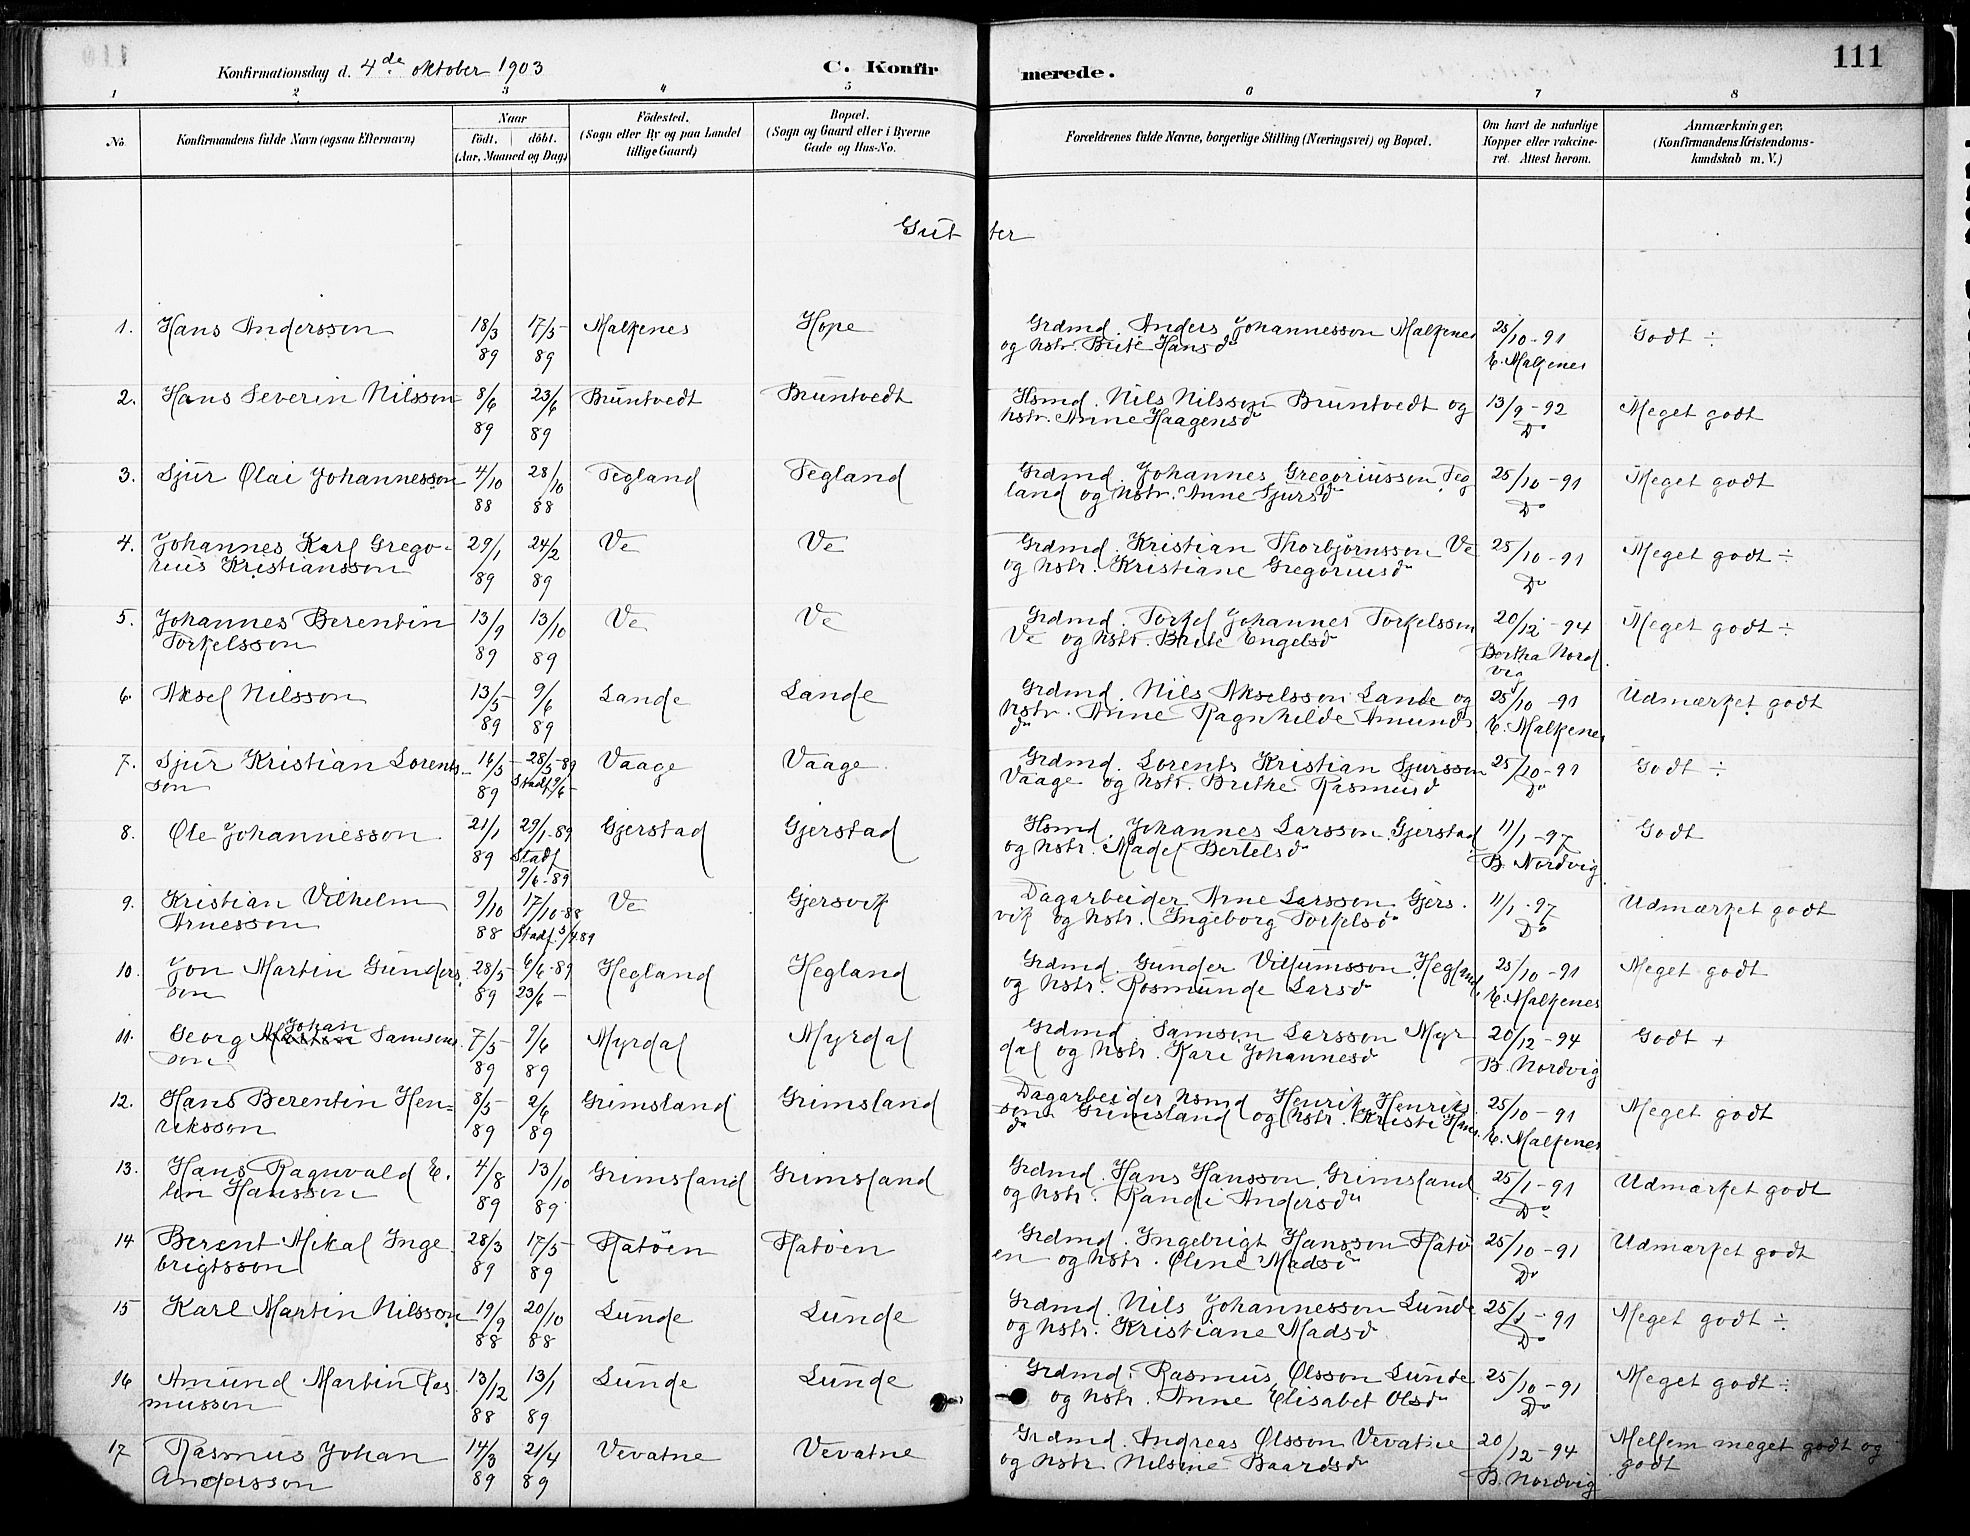 111
Konfirmationsdag d. 4de oktober 1903
C. Konfirmerede.
1 2 3 4 5 6 7 8
No.
Konfirmandens fulde Navn (ogsaa Efternavn)
Naar
født. døbt.
(Aar, Maaned og Dag)
Födested.
(Sogn eller By og paa Landet tillige Gaard)
Bopæl.
(Sogn og Gaard eller i Byerne Gade og Hus-No.
Forældrenes fulde Navne, borgerlige Stilling (Næringsvei) og Bopæl.
Om havt de naturlige Kopper eller vakcineret. Attest herom.
Anmærkninger,
(Konfirmandens Kristendomskundskab m. V.)
Gutter
1. Hans Anderssen 18/3 89 17/5 89 Malkenes Hope Grdmd. Anders Johannesson Malkenes og hstr. Brite Hansdr 25/10-91 E. Malkenes Godt ÷
2. Hans Severin Nilsson 8/6 89 23/6 89 Bruntvedt Bruntvedt Hsmd. Nils Nilsson Bruntvedt og hstr. Anne Haagensdr 13/9-92 Do Meget godt
3. Sjur Olai Johannesson 4/10 88 28/10 88 Tegland Tegland Grdmd. Johannes Gregoriusson Tegland og hstr. Anne Sjursdr 25/10-91 Do Meget godt
4. Johannes Karl Gregorius Kristiansson 29/1 89 24/2 89 Ve Ve Grdmd. Kristian Thorbjørnsson Ve og hstr. Kristiane Gregoriusdr 25/10-91 Do Meget godt ÷
5. Johannes Berentin Torkelsson 13/9 89 13/10 89 Ve Ve Grdmd. Torkel Johannes Torkelsson Ve og hstr. Brite Engelsdr 20/12-94 Bertha Nordvig Meget godt ÷
6. Aksel Nilsson 13/5 89 9/6 89 Lande Lande Grdmd. Nils Akselsson Lande og hstr. Anne Ragnhilde Amundsdr 25/10-91 E. Malkenes Udmærket godt
7. Sjur Kristian Lorentsson 16/5 89 28/5-89 Stadf. 9/6 Vaage Vaage Grdmd. Lorents Kristian Sjursson Vaage og hstr. Brithe Rasmusdr 25/10-91 Do Godt ÷
8. Ole Johannesson 21/1 89 29/1-89 Stadf 9/6-89 Gjerstad Gjerstad Hsmd. Johannes Larsson Gjerstad og hstr. Madel Bertelsdr 11/1-97 B. Nordvig Godt
9. Kristian Vilhelm Arnesson 9/10 88 17/10-88 Stadf. 3/4 89 Ve Gjersvik Dagarbeider Arne Larsson Gjersvik og hstr. Ingeborg Torkelsdr 11/1-97 Do Udmærket godt
10. Jon Martin Gundersson 28/5 89 6/6-89 23/6 Hegland Hegland Grdmd. Gunder Viljumsson Hegland og hstr. Rosmunde Larsdr 25/10-91 E. Malkenes Meget godt
11. Georg Johan Samsonson 7/5 89 9/6 89 Myrdal Myrdal Grdmd. Samson Larsson Myrdal og hstr. Kari Johannesdr 20/12-94 B. Nordvig Godt +
12. Hans Berentin Henriksson 8/5 89 2/6 89 Grimsland Grimsland Dagarbeider hsmd Henrik Henriksson Grimsland og hstr. Kristi Hansdr 25/10-91 E. Malkenes Meget godt
13. Hans Ragnvald Elin Hansson 4/8 89 13/10 89 Grimsland Grimsland Grdmd. Hans Hansson Grimsland og hstr. Randi Andersdr 25/1-91 Do Udmærket godt
14 Berent Mikal Ingebrigtsson 28/3 89 17/5 89 Flatöen Flatöen Grdmd. Ingebrigt Hansson Flatöen og hstr. Oline Madsdr 25/10-91 Do Udmærket godt
15 Karl Martin Nilsson 19/9 88 20/10 88 Lunde Lunde Grdmd. Nils Johannesson Lunde og hstr. Kristiane Madsdr. 25/1-91 Do Meget godt ÷
16 Amund Martin Rasmusson 13/12 88 13/1 89 Lunde Lunde Grdmd. Rasmus Olsson Lunde og hstr. Anne Elisabet Olsdr 25/10-91 Do Meget godt ÷
17 Rasmus Johan Andersson 14/3 89 21/4 89 Vevatne Vevatne Grdmd. Andreas Olsson Vevatne og hstr Nilsine Baardsdr 20/12-94 B. Nordvig Mellem meget godt og godt